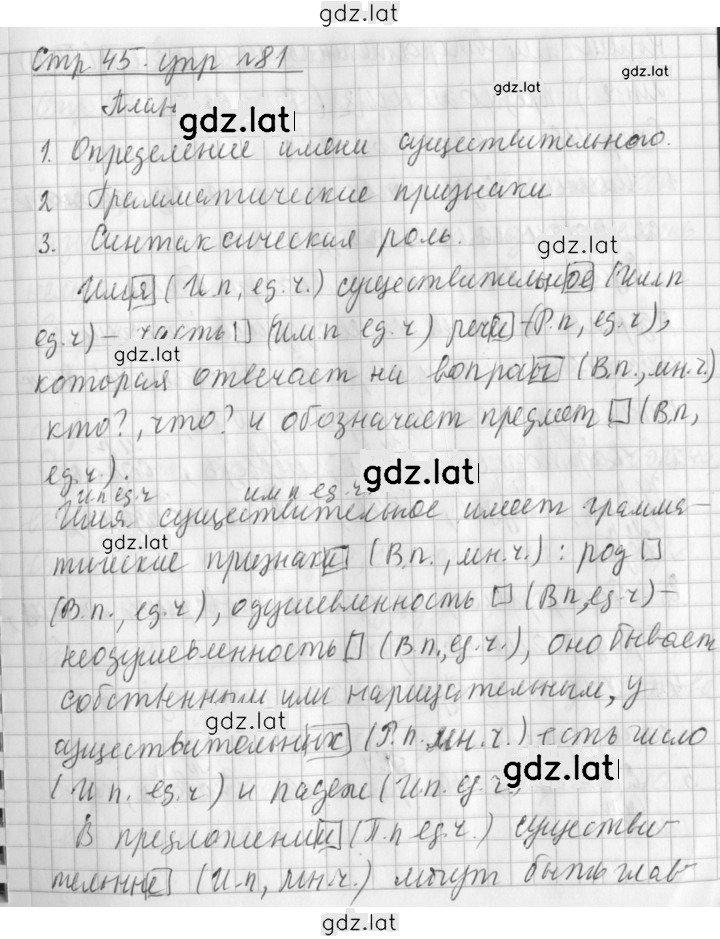 gdz.lat
Стр. 45. упр №81
gdz.lat
gdz.lat
План
gdz.lat
1. Определение имени существительного.
2 Грамматические признаки
3. Синтаксическая роль.
gdz.lat
Имя (И.п, ед.ч.) существительное (Им.п
ед.ч) - часть (Им.п ед.ч) речи (Р.п, ед.ч),
gdz.lat
которая отвечает на вопросы (В.п., мн.ч.)
кто?, что? и обозначает предмет (В.п,
ед.ч.).
gdz.lat
И.п ед.ч им п ед.ч
Имя существительное имеет грамма-
gdz.lat
тические признаки (В.п., мн.ч.): род
(В.п., ед.ч), одушевленность (В.п, ед.ч) -
неодушевленность (В.п., ед.ч.), оно бывает
собственным или нарицательным, у
gdz.lat
существительных (Р.п. мн.ч.) есть число
gdz.lat
(И п. ед.ч) и падеж (И.п. ед.ч.
В предложении (П.п ед.ч.) существи-
тельные (И.п, мн.ч.) могут быть глав-
gdz.lat